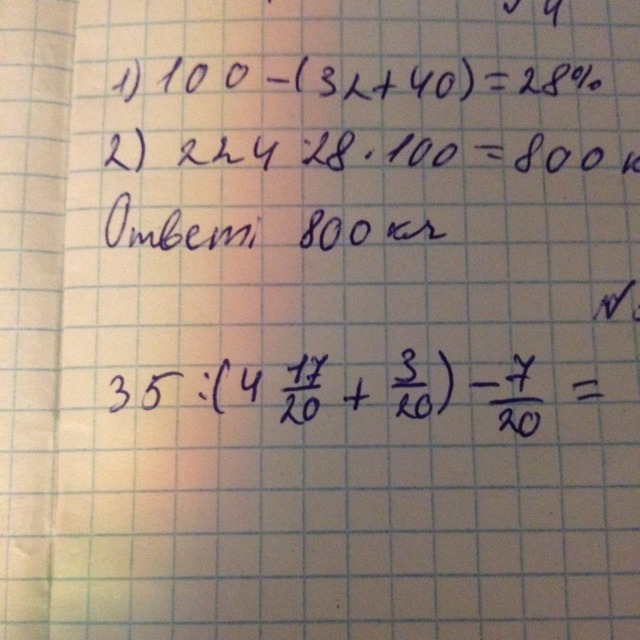 1) 100 - (32 + 40) = 28%
2) 224 : 28 · 100 = 800
Ответ: 800 кг
№
35 : (4 17/20 + 3/20) - 7/20 =